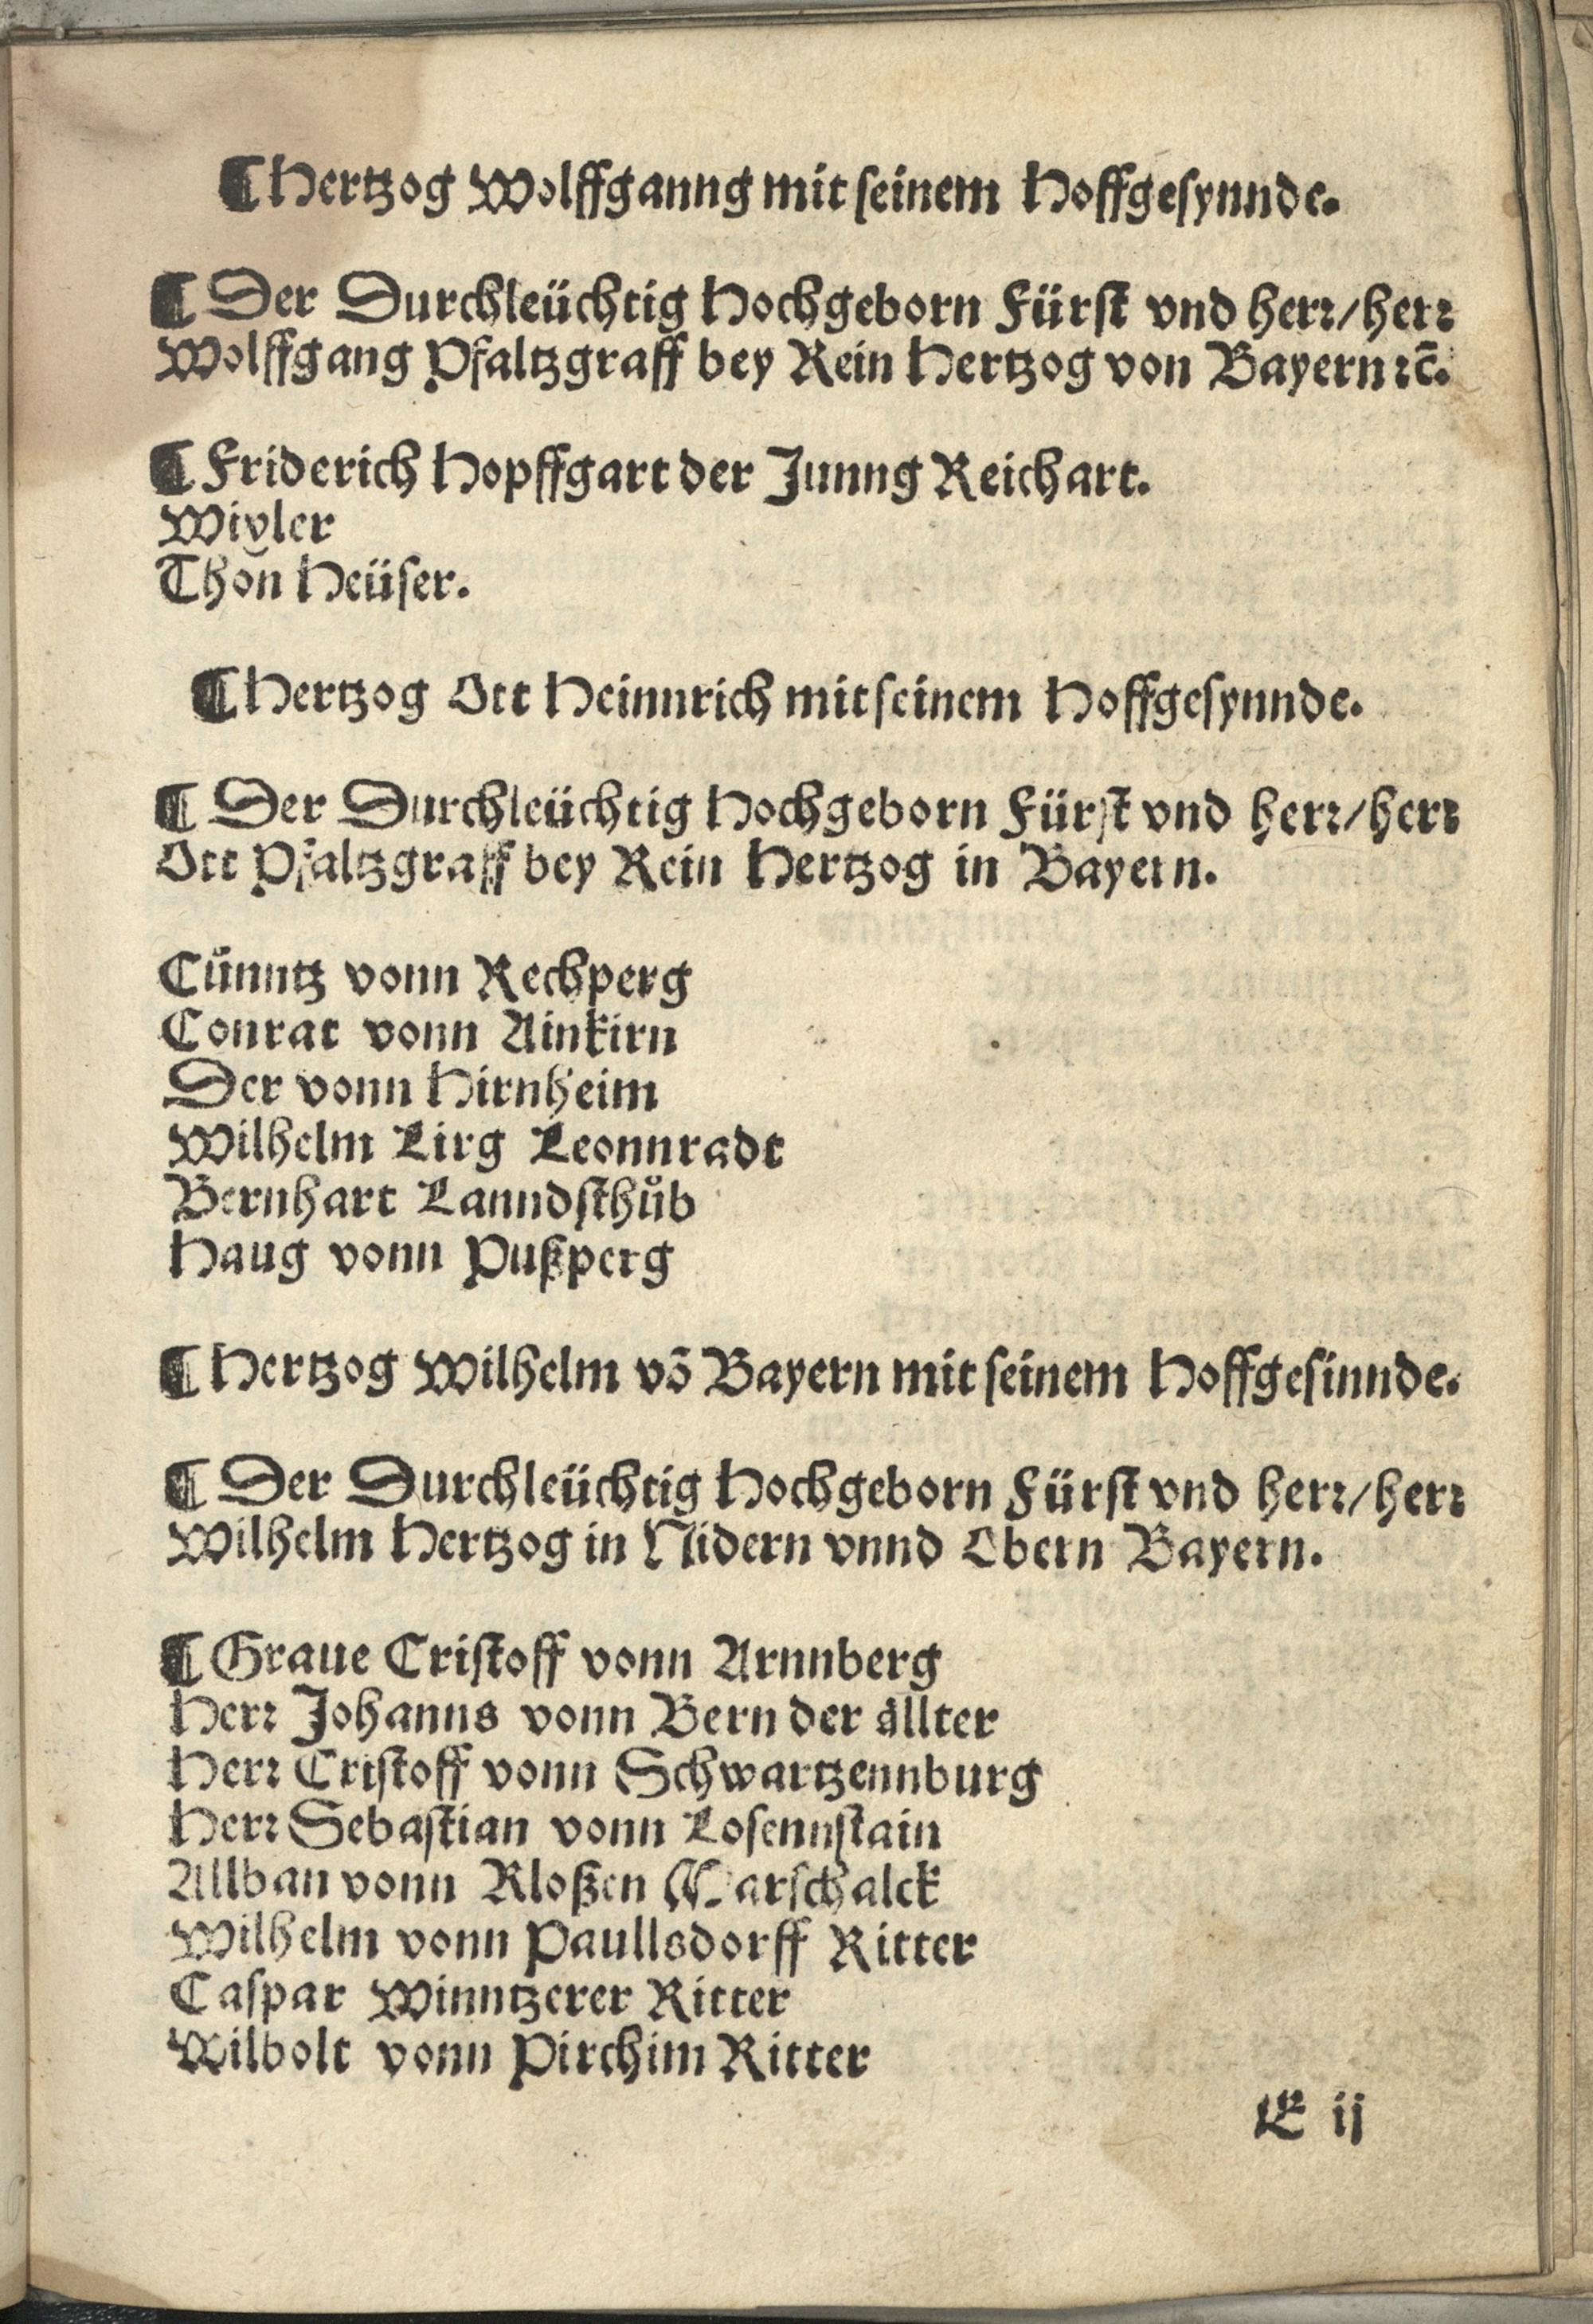 ¶ Hertzog Wolffganng mit seinem Hoffgesynnde.
¶ Der Durchleüchtig Hochgeborn Fürst vnd herꝛ/herꝛ
Wolffgang Pfaltzgraff bey Rein Hertzog von Bayern ꝛc̄.
¶ Friderich Hopffgart der Junng Reichart.
Wivler
Thŏn Heüser.
¶ Hertzog Ott Heinnrich mit seinem Hoffgesynnde.
¶ Der Durchleüchtig Hochgeborn Fürst vnd herꝛ/herꝛ
Ott Pfaltzgraff bey Rein Hertzog in Bayern.
Cůnntz vonn Rechperg
Conrat vonn Ainkirn
Der vonn Hirnheim
Wilhelm Lirg Leonnradt
Bernhart Lanndsthůb
Haug vonn Pußperg
¶ Hertzog Wilhelm võ Bayern mit seinem Hoffgesinnde.
¶ Der Durchleüchtig Hochgeborn Fürst vnd herꝛ/herꝛ
Wilhelm Hertzog in Nidern vnnd Obern Bayern.
¶ Graue Cristoff vonn Arnnberg
Herꝛ Johanns vonn Bern der ällter
Herꝛ Cristoff vonn Schwartzennburg
Herꝛ Sebastian vonn Losennstain
Allban vonn Kloßen Marschalck
Wilhelm vonn Paullsdorff Ritter
Caspar Winntzerer Ritter
Wilbolt vonn Pirchim Ritter
E ij